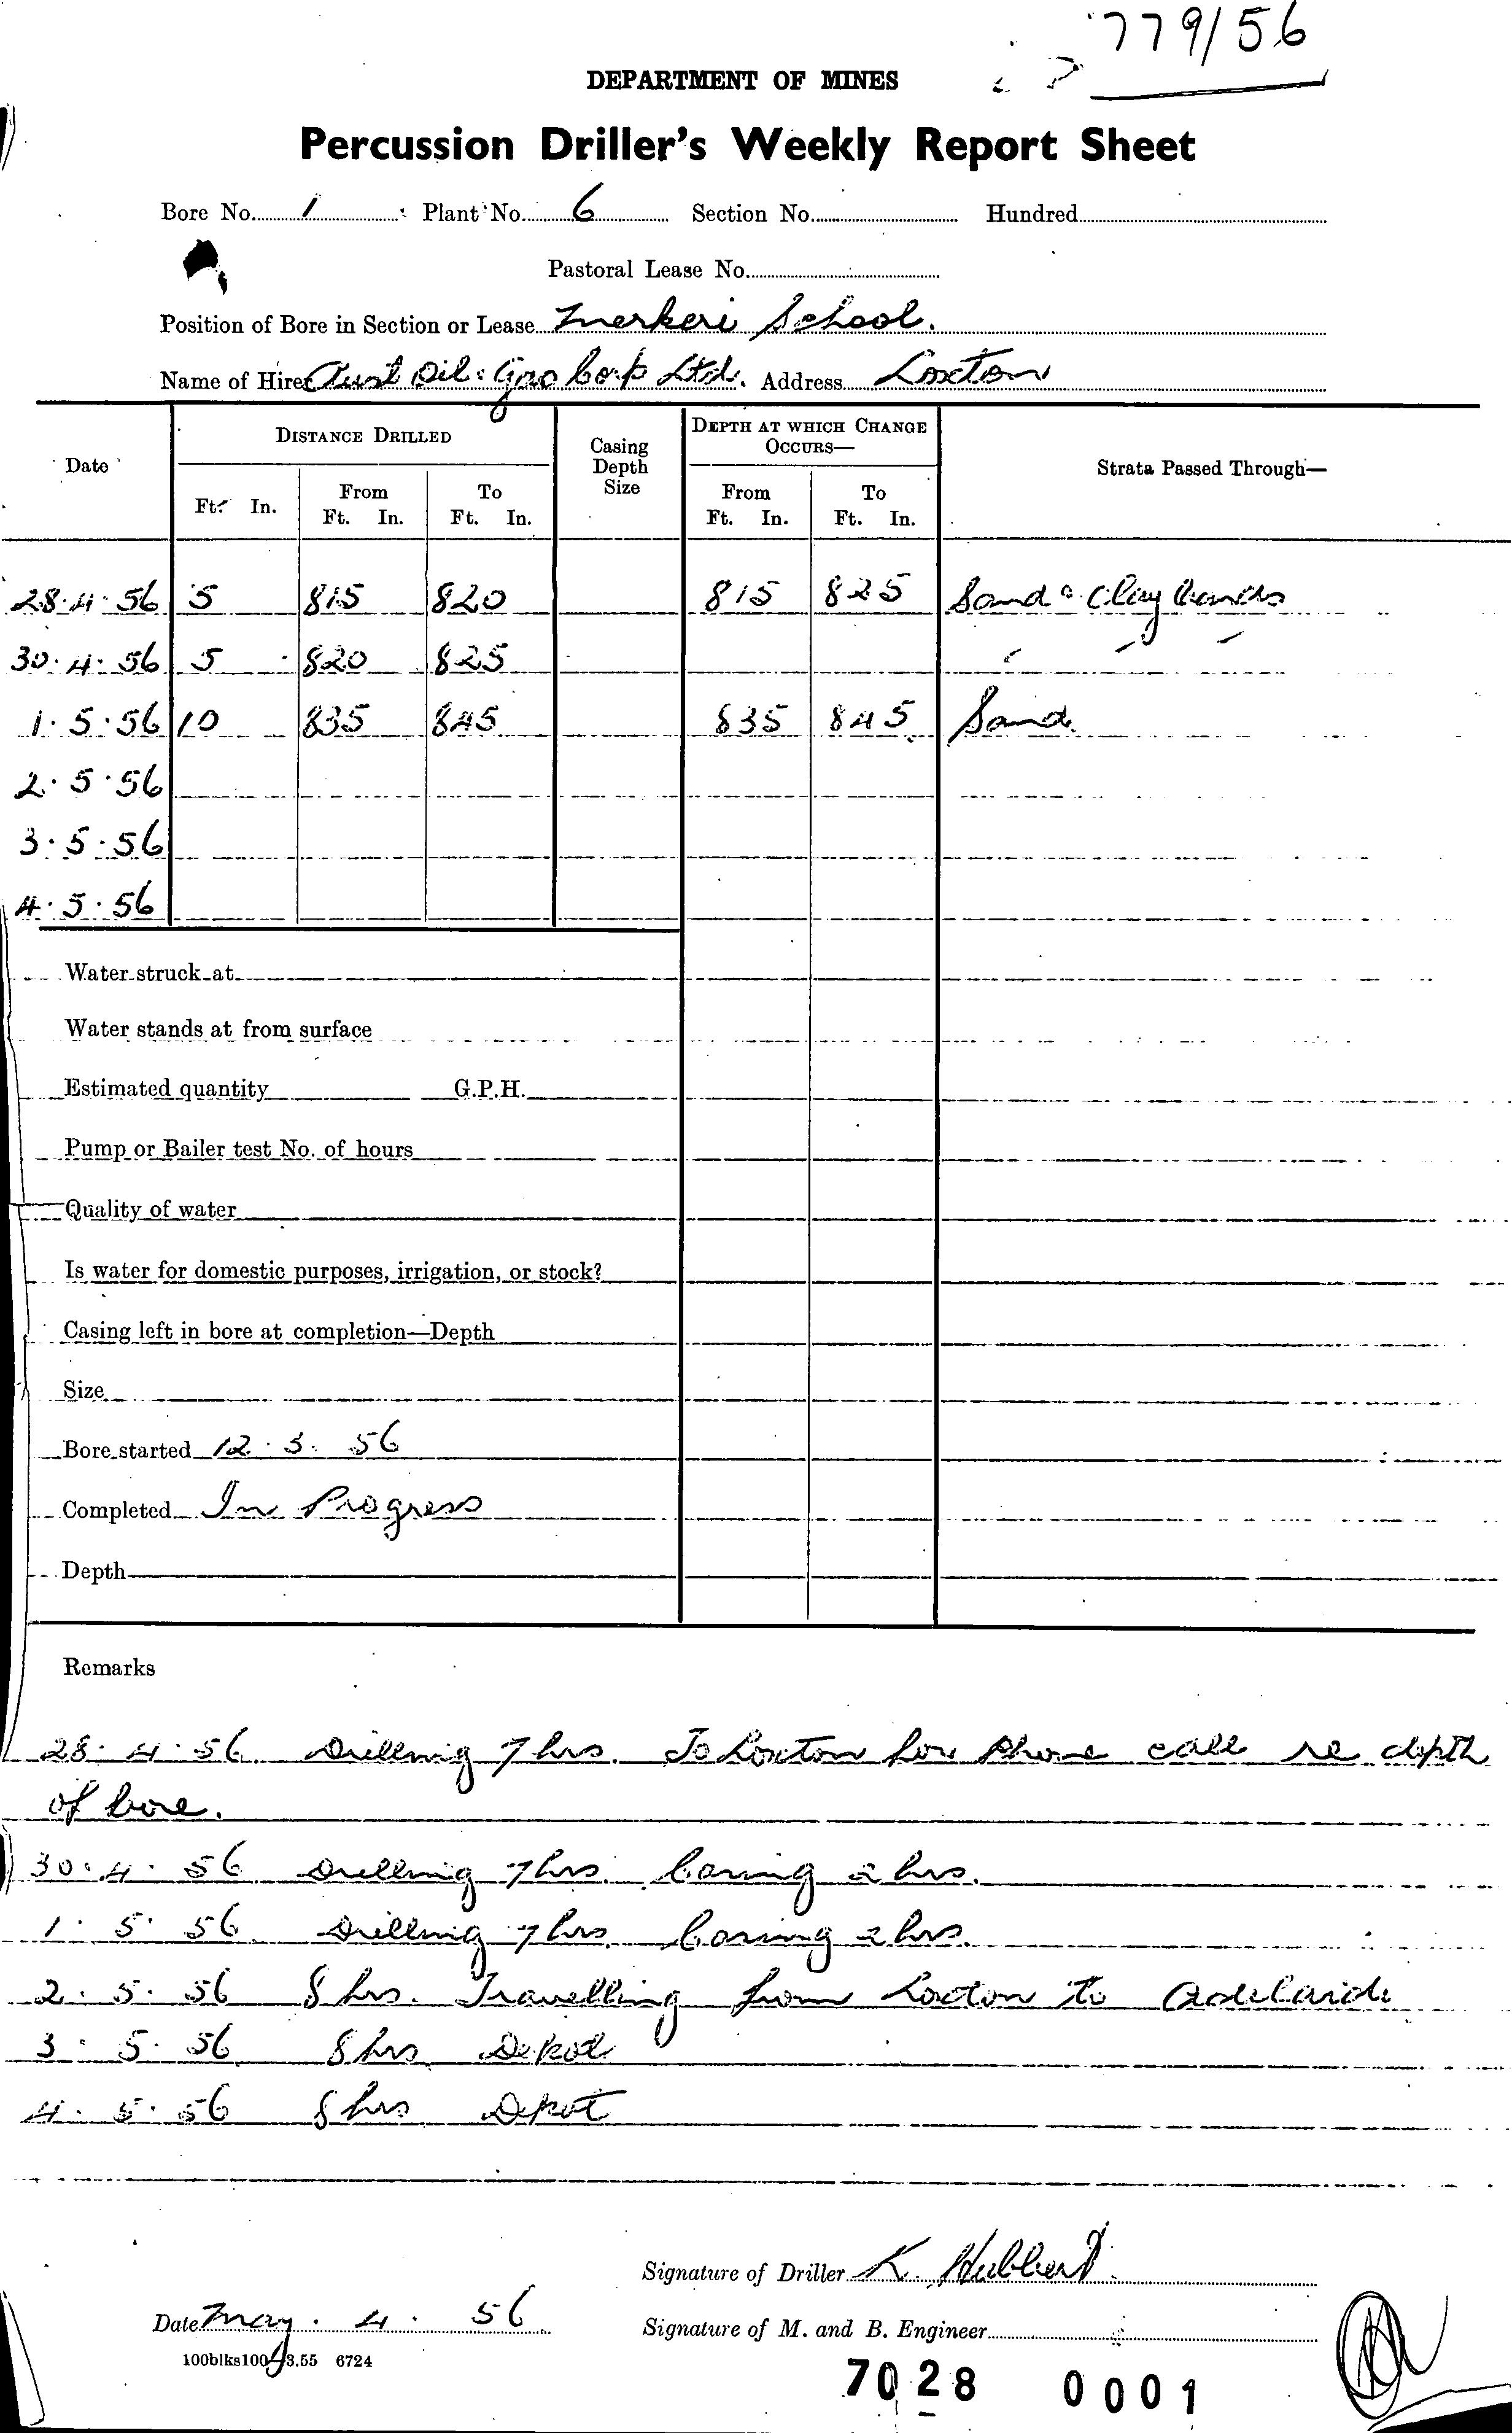 779/56
DEPARTMENT OF MINES
Percussion Driller's Weekly Report Sheet
Bore No. 1 Plant No. 6 Section No. Hundred
Pastoral Lease No.
Position of Bore in Section or Lease Merkeri School.
Name of Hirer Aust Oil & Gas Corp Ltd. Address Loxton
Date DISTANCE DRILLED Casing Depth Size DEPTH AT WHICH CHANGE OCCURS— Strata Passed Through—
Ft. In. From Ft. In. To Ft. In. From Ft. In. To Ft. In.
28.4.56 5 815 820 815 825 Sand & Clay bands
30.4.56 5 820 825
1.5.56 10 835 845 835 845 Sand
2.5.56
3.5.56
4.5.56
Water struck at
Water stands at from surface
Estimated quantity G.P.H.
Pump or Bailer test No. of hours
Quality of water
Is water for domestic purposes, irrigation, or stock?
Casing left in bore at completion—Depth
Size
Bore started 12.3.56
Completed In Progress
Depth
Remarks
28.4.56 Drilling 7 hrs. To Loxton for phone call re depth
of bore.
30.4.56 Drilling 7 hrs. Casing 2 hrs.
1.5.56 Drilling 7 hrs. Casing 2 hrs.
2.5.56 8 hrs. Travelling from Loxton to Adelaide
3.5.56 8 hrs Depot
4.5.56 8 hrs Depot
Signature of Driller K. Hubbert
Date May. 4. 56 Signature of M. and B. Engineer
3.55 6724
7028 0001